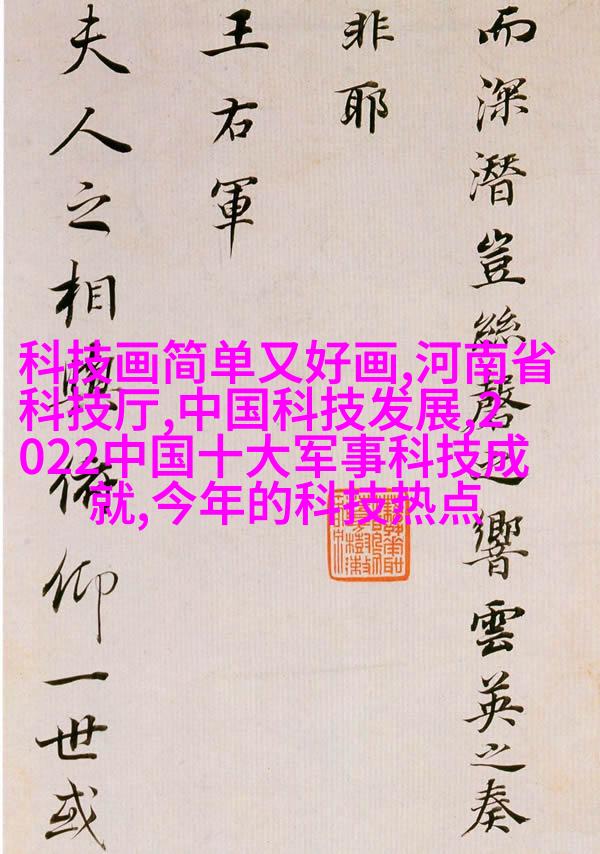 而深潛豈絲磬之響雲英之奏
非耶
王右軍
夫人之相與俯仰一世或
科技画简单又好画,河南省
科技厅,中国科技发展,2
022中国十大军事科技成
就,今年的科技热点